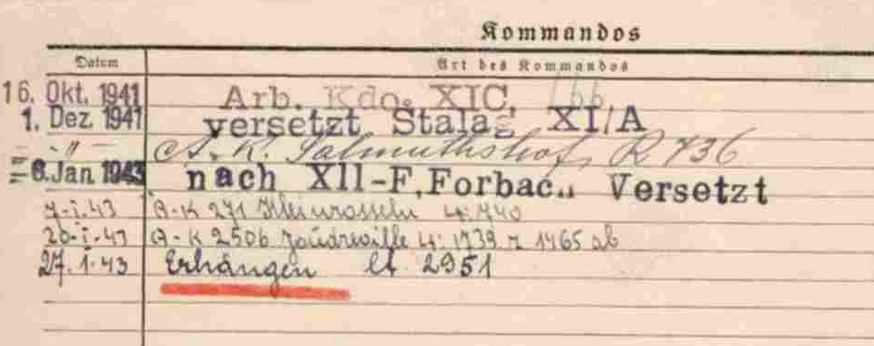 Kommandos
Datum Art des Kommandos
16. Okt. 1941 Arb. Kdo. XIC, 166
1. Dez. 1941 versetzt Stalag XI/A
- " - A. K. Salmuthshof, R 736
6. Jan 1943 nach XII-F, Forbach Versetzt
7-I.43 A-K 271 Kleinrosseln
20-I-43 A-K 2506
27.1.43 Erhängen lt 2951